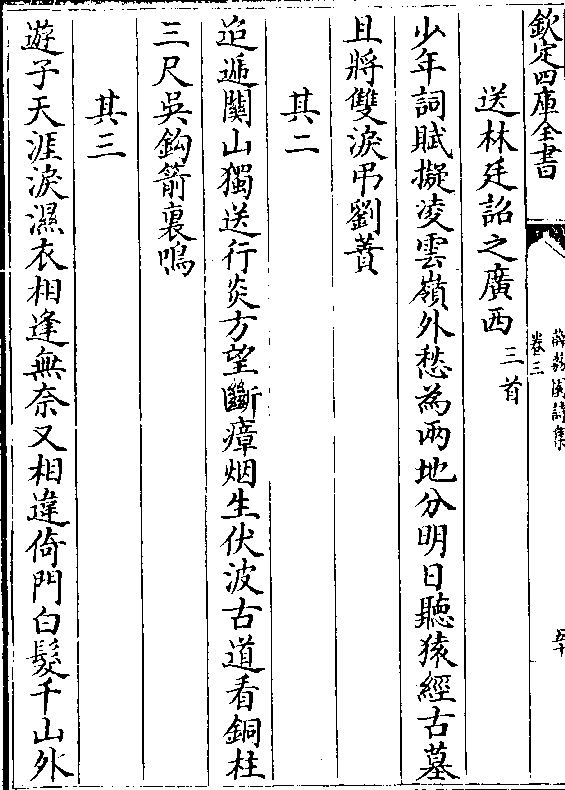 欽定四庫全書
卷三
送林廷詔之廣西三首
少年詞賦擬凌雲嶺外愁為兩地分明日聽猿經古墓
且將雙淚弔劉蕡
其二
迢遞關山獨送行炎方望斷瘴烟生伏波古道看銅柱
三尺吳鈎箭裏鳴
其三
遊子天涯淚濕衣相逢無奈又相違倚門白髮千山外